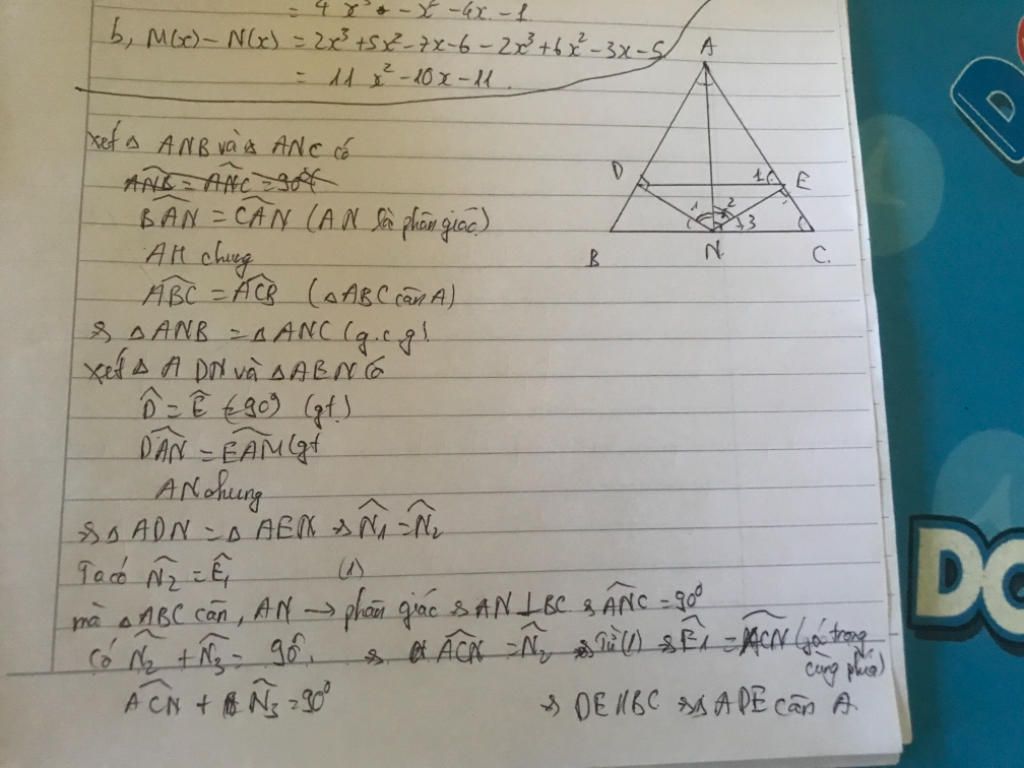 = 4x³ - x² - 4x - 1
b, M(x) - N(x) = 2x³ + 5x² - 7x - 6 - 2x³ + 6x² - 3x - 5
= 11x² - 10x - 11
xét △ ANB và △ ANC có
ANB = ANC = 90°
BAN = CAN (AN là phân giác)
AH chung
ABC = ACB (△ABC cân A)
=> △ ANB = △ ANC (g.c.g)
xét △ ADN và △AEN có
D̂ = Ê (=90°) (gt)
DAN = EAN (gt
AN chung
=> △ ADN = △ AEN => N̂1 = N̂2
Ta có N̂2 = Ê1 (1)
mà △ ABC cân, AN → phân giác => AN ⊥ BC => ANC = 90°
Có N̂2 + N̂3 = 90°. => ACN = N̂2 => Từ (1) => Ê1 = ACN (góc trong
cùng phía)
ACN + N̂3 = 90°
=> DE // BC => △ ADE cân A.
A
D
1
E
1
2
3
B
N
C.
DC